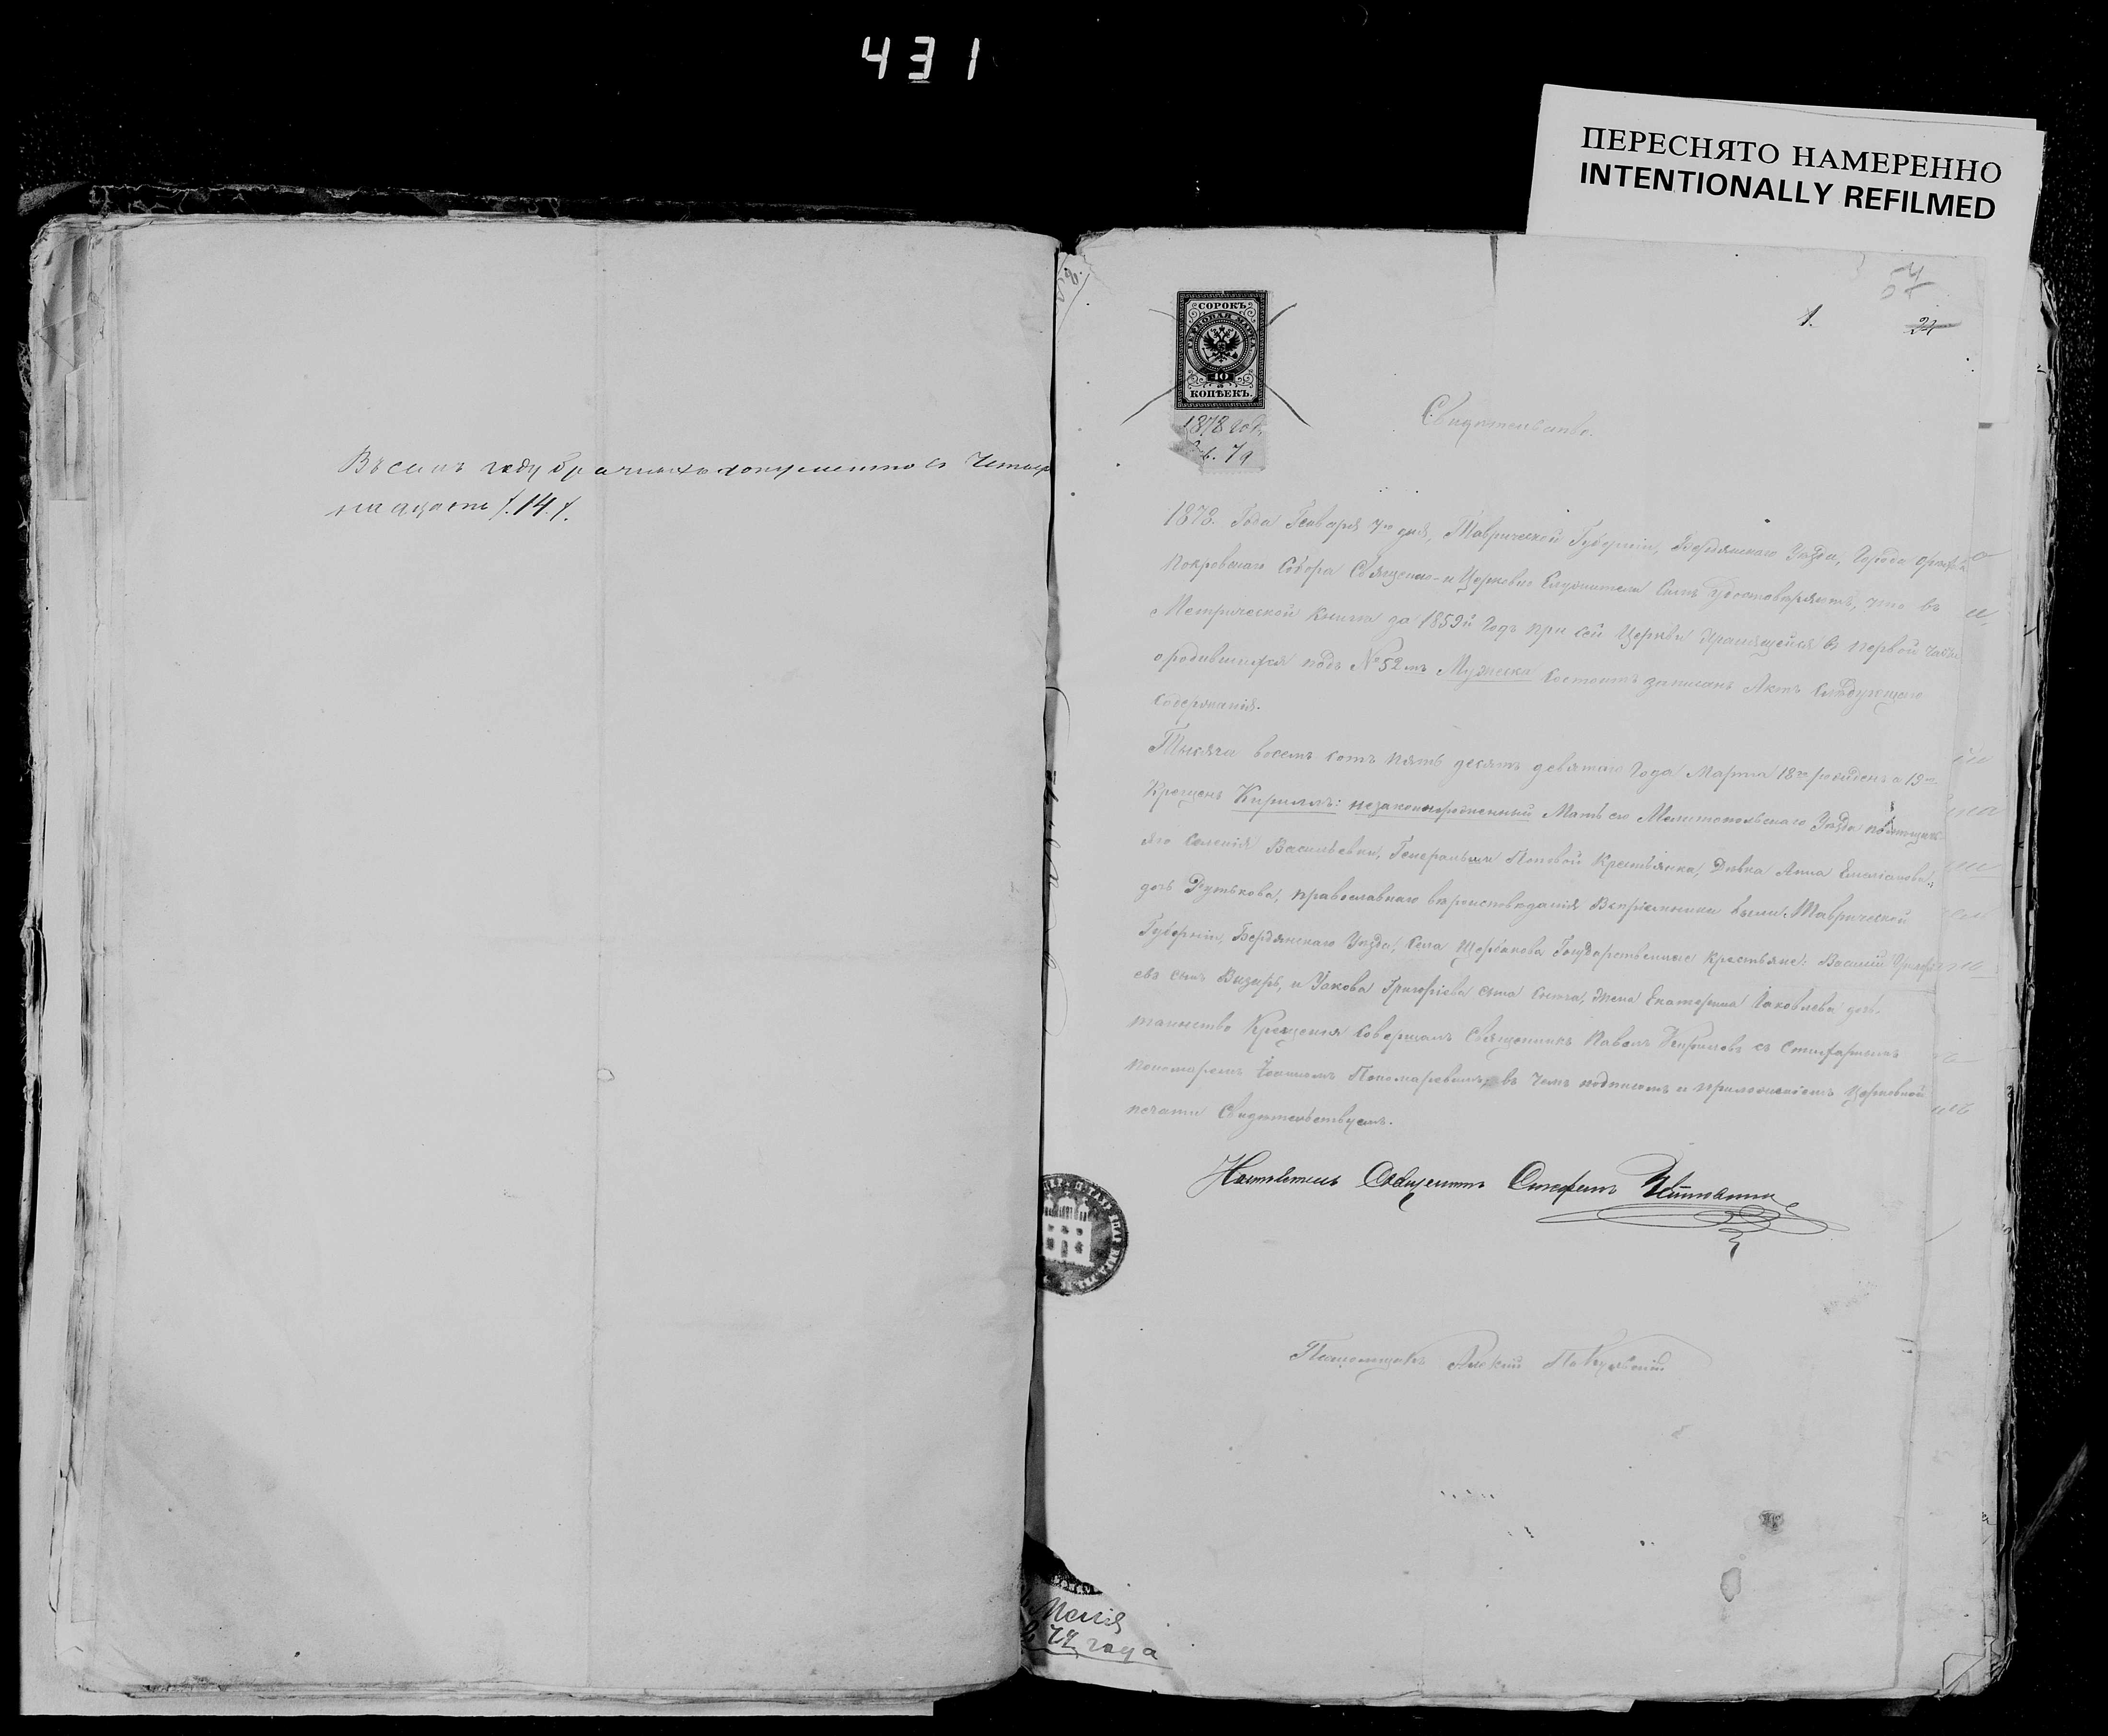 431
ПЕРЕСНЯТО НАМЕРЕННО
INTENTIONALLY REFILMED
Въ семъ году брачныхъ документовъ Четыр
надцать /.14./.
1.
24
СОРОКЪ
ГЕРБОВАЯ МАРКА
40
КОПѢЕКЪ.
1878 год.
Свидѣтельство.
1878. Года Генваря 7го дня, Таврической Губерніи, Бердянскаго Уѣзда, Города Орѣхова
Покровскаго Собора Священно- и Церковно Служители Симъ Удостовѣряютъ, что въ
Метрической Книгѣ за 1859й Годъ при сей Церкви Хранящейся въ первой Части
о родившихся подъ № 52мъ Мужеска состоитъ записанъ Актъ Слѣдующаго
Содержанія.
Тысяча восемъ сотъ пять десятъ девятаго Года Марта 18го рожденъ а 19го
Крещенъ Кириллъ: незаконнорожденный Мать его Мелитопольскаго Уѣзда помѣщичь
яго Селенія Васильевки, Генеральши Поповой Крестьянка, Дѣвка Анна Емеліанова
дочь Гутькова, православнаго вѣроисповѣданія Воспріемники были: Таврической
Губерніи, Бердянскаго Уѣзда, Села Щербакова Государственные Крестьяне: Василій
евъ сынъ Визирь, и Якова Григоріева сына жена Екатерина Іаковлева дочь.
таинство Крещенія Совершалъ Священникъ Павелъ съ Стихарнымъ
пономаремъ Пономаревымъ, въ чемъ подписомъ и приложеніемъ Церковной
печати Свидѣтельствуемъ.
Настоятель Священникъ Стефанъ
Псаломщикъ Алексій
года